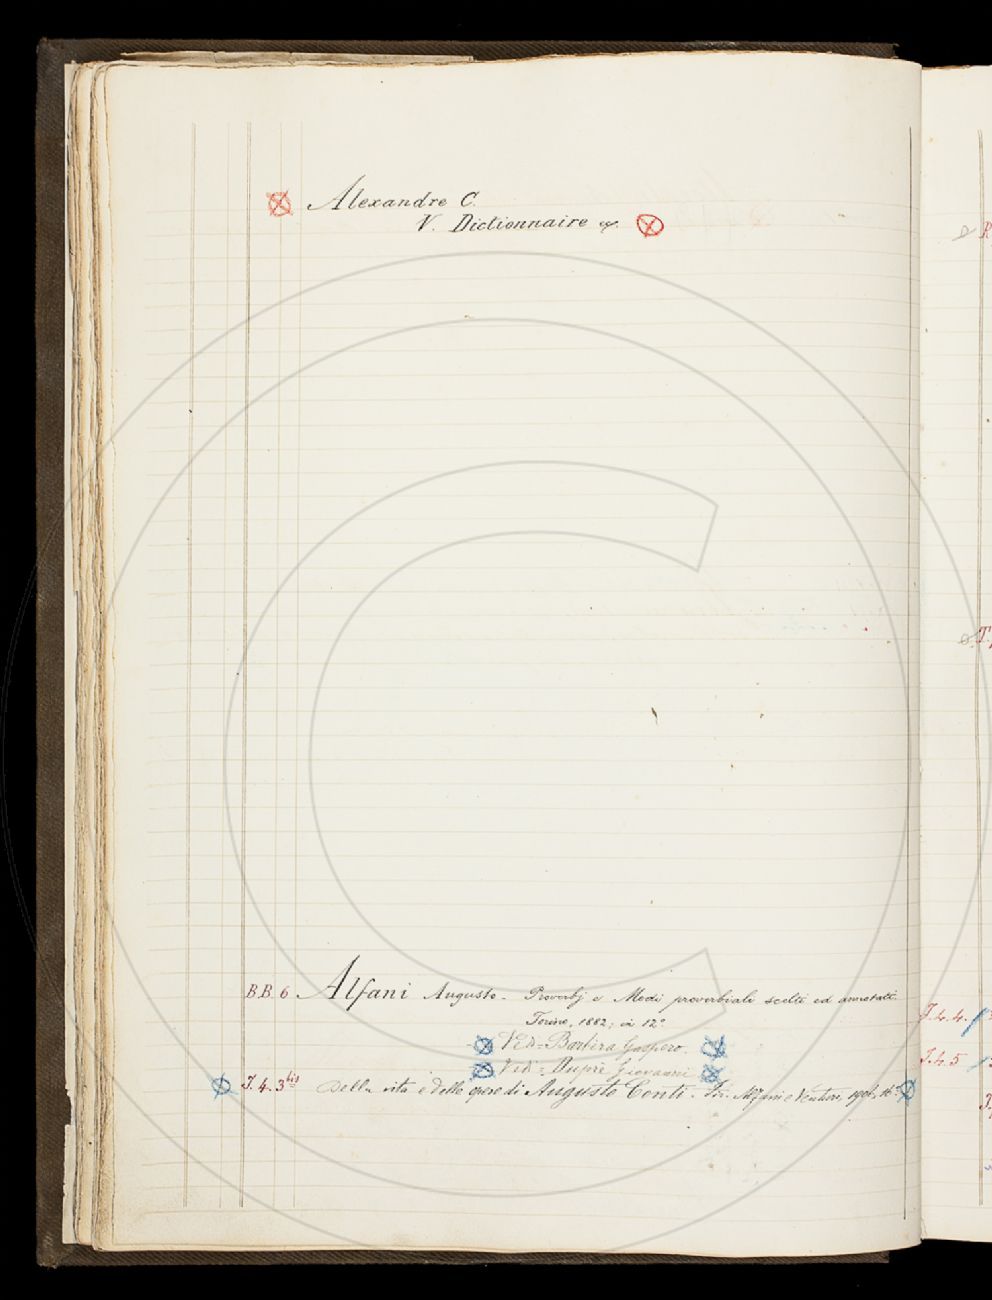 Alexandre C.
V. Dictionnaire &.
B.B. 6 Alfani Augusto. Proverbj e Modi proverbiali scelti ed annotati.
Torino, 1882; in 12°
Vedi = Barbèra Gaspero.
Vedi = Dupré Giovanni
I. 4. 3 bis Della vita e delle opere di Augusto Conti. Alfani e Venturi, 1906, 16°
I. 4. 4.
I. 4. 5